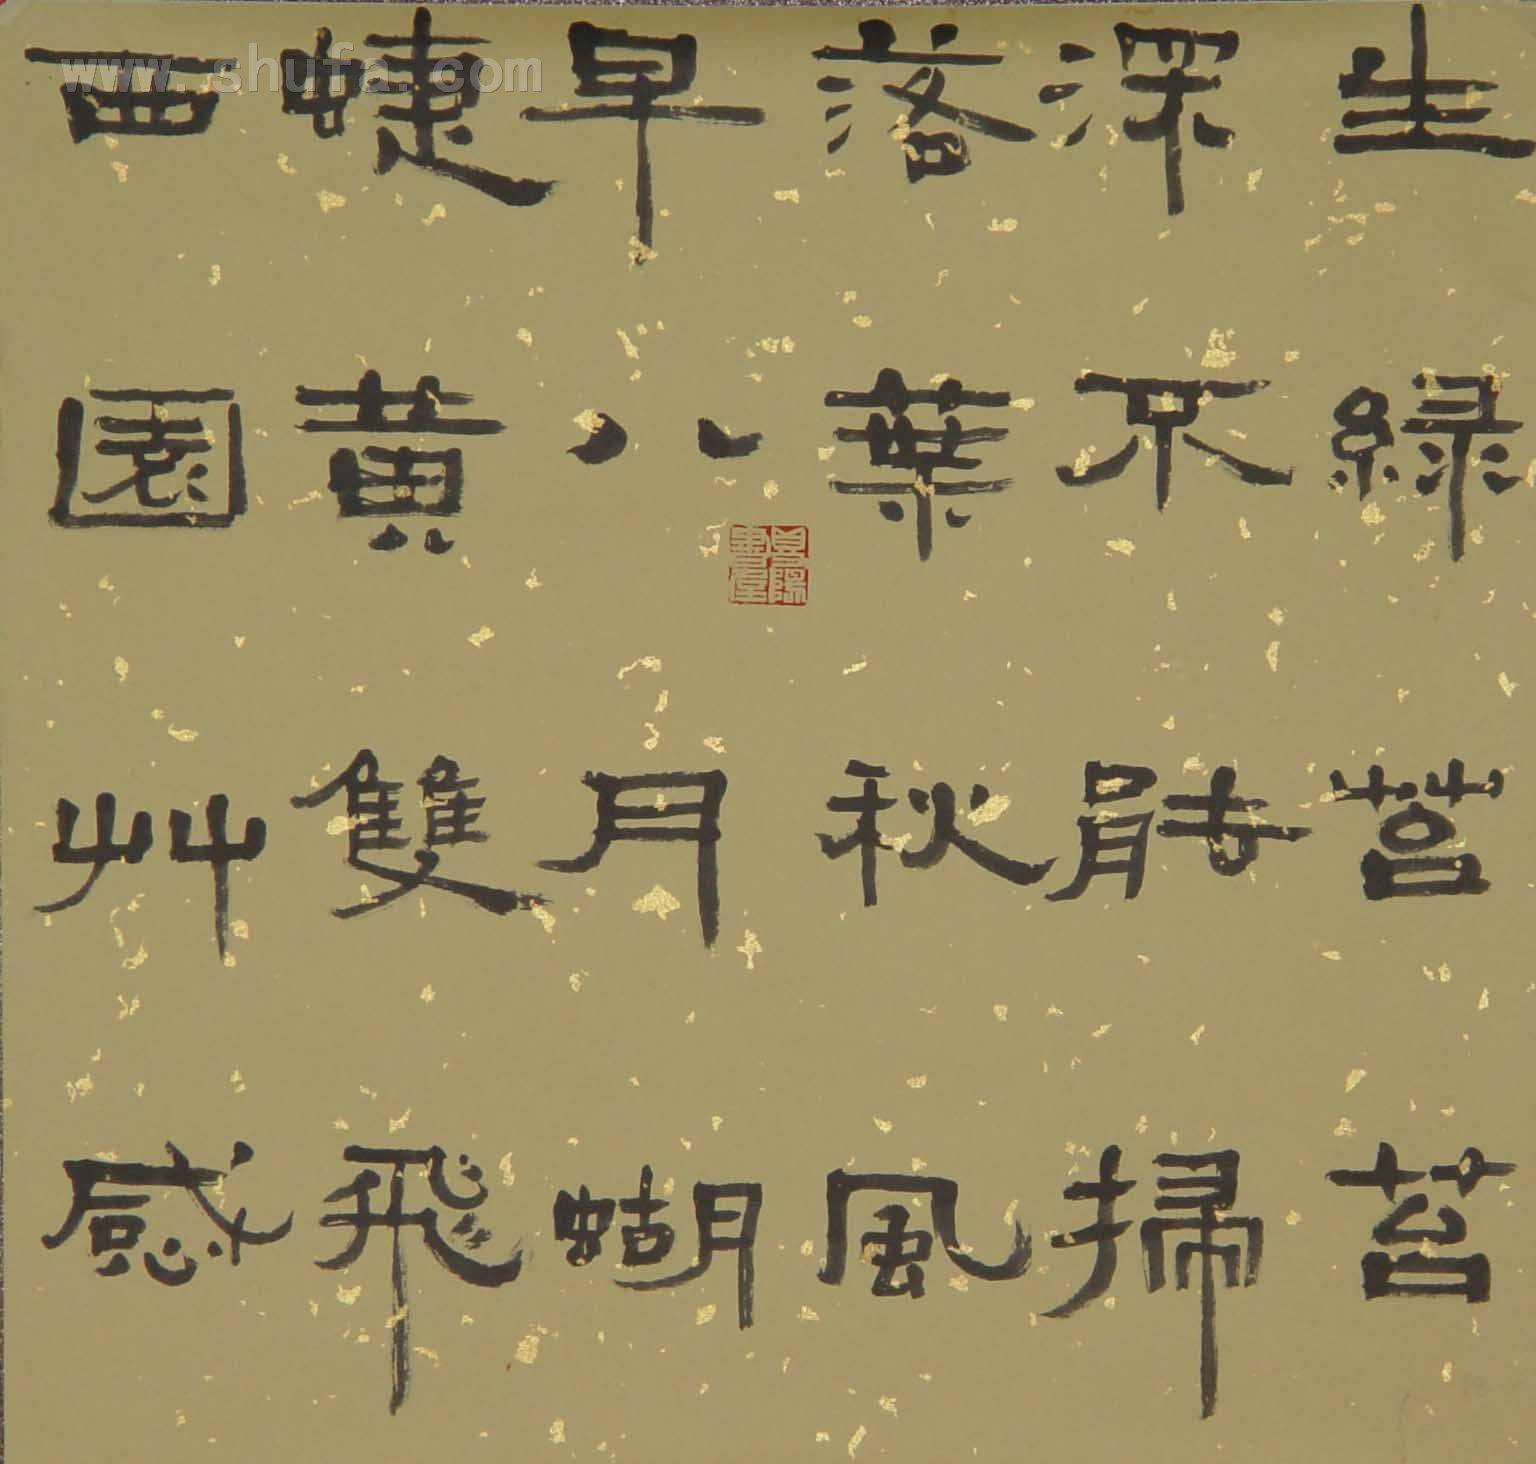 生緑苔苔
深不能掃
落葉秋風
早八月蝴
蜨黄雙飛
西園艸感
www.shufa.com